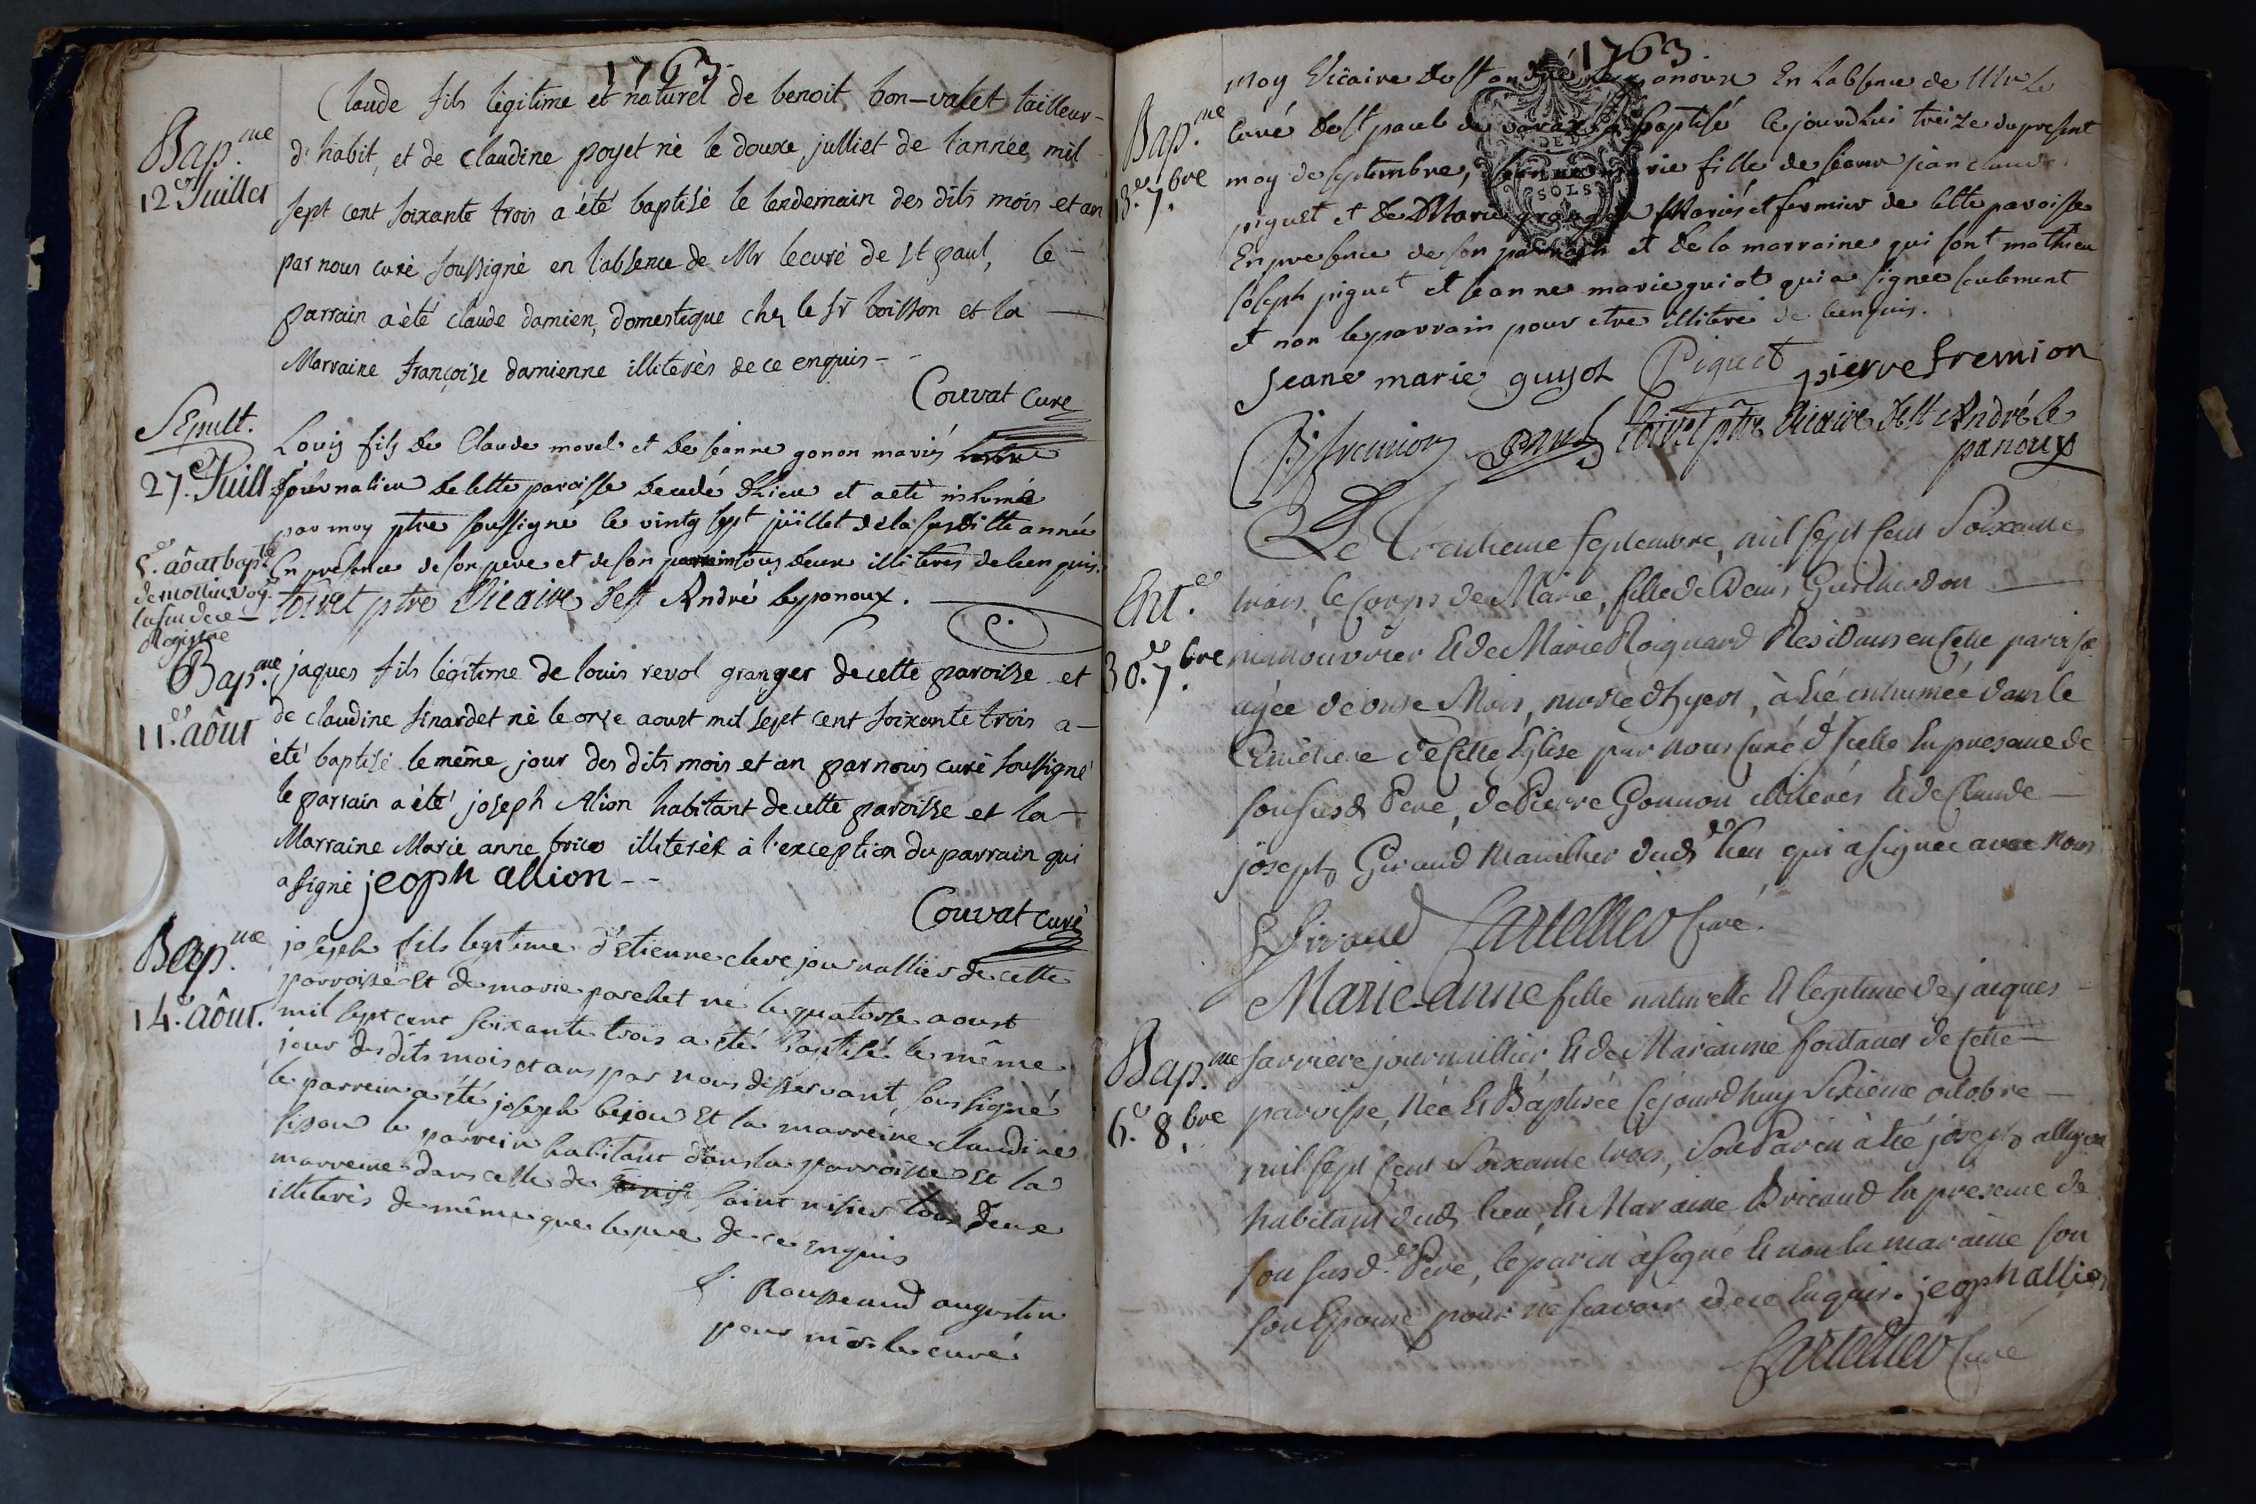 1763
Bap.me
12e Juillet
Claude fils legitime et naturel de benoit bon-valet tailleur-
d'habit, et de claudine poyet nè le douxe julliet de l'année mil
sept cent soixante trois a été baptisè le lendemain des dits mois et an
par nous curè soussignè en l'absence de Mr lecurè de st paul, le
parrain a été claude damien, domestique chez le sr boisson et la
Marraine françoise damienne illiterès de ce enquis-
Couvat curé
Sepult.
27.e Juill
Louis fils de Claude morel et de jeanne gonon mariés
journalier de cette paroisse decedé d'hier et a eté inhumé
par moy ptre soussigné le vingt sept juillet de la susditte année
En presence de son pere et de son parrain tous deux illiterés de ce enquis.
toivet ptre Vicaire de st André le panoux.
5.e août bapt.
de mollin voy.
la fin de ce
Registre
Bap.me
11.e août
jaques fils légitime de louis revol granger de cette paroisse et
de claudine sinardet nè le onze aoust mil sept cent soixante trois a
été baptisé le même jour des dits mois et an par nous curé soussigné
le parrain a été joseph Alion habitant de cette paroisse et la
Marraine Marie anne brico illiterès à l'exception du parrain qui
a signè jeoph allion
Couvat curé
Bap.me
14.e août.
joseph fils legitime d'Etienne clere journallier de cette
parroisse Et de marie parchet né le quatorze aoust
mil sept cent soixante trois a été baptisé le même
jour des dits mois et ans par nous desservant, soussigné
le parrein a été joseph bejou Et la marreine claudine
le parrein habitant dans la parroisse Et la
marreine dans celle de saint nisier tous deux
illiterés de même que le pere de ce enquis
f. Rousseaud augustin
pour mr le curé
1763
Bap.me
13.e 7.bre
moy Vicaire de st andré le panoux En l'absence de Mr Le
Curé de st paul de varax a baptisé ce jourdhui treize du present
moy de septembre, jeanne marie fille de sieur jean claude
piguet et de Marie granger Mariés et fermier de cette paroisse
En presence de son parrain et de la marraine qui sont mathieu
joseph piguet et jeanne marie guiot qui a signée seulement
et non le parrain pour etre illiteré de ce enquis.
Jeane marie guyot Piguet pierre fremion
fremion toivet ptre Vicaire de st André le
panoux
Ent.e
30.e 7.bre
Le Trentieme septembre, mil sept cent Soixante
trois, le corps de Marie, fille de Denis Guillerdon
manouvrier & de Marie Roignard Residans en cette paroisse
agée de onze Mois, morte d'hyer, à été inhumée dans le
Cimetiere de cette Eglise par nous curé d'Icelle En presence de
son susd. Pere, de Pierre Gonnon illiterés & de Claude
joseph Giraud Manillier dud. lieu qui a signée avec nous
Giraud Cartellier Curé.
Bap.me
6.e 8.bre
Marie-anne fille naturelle & legitime de jacques
sarriere journaillier, & de Marianne fontanet de cette
paroisse, Née & Baptisée cejourdhuy Sixiéme octobre
mil sept cent Soixante trois, Son Parin à été joseph allion
habitant dud. lieu, & Maraine Bricaud En presence de
son susd. Pere, le parin à signé & non la maraine son
son Epouse pour ne scavoir de ce Enquis. jeoph allion
Cartellier Curé